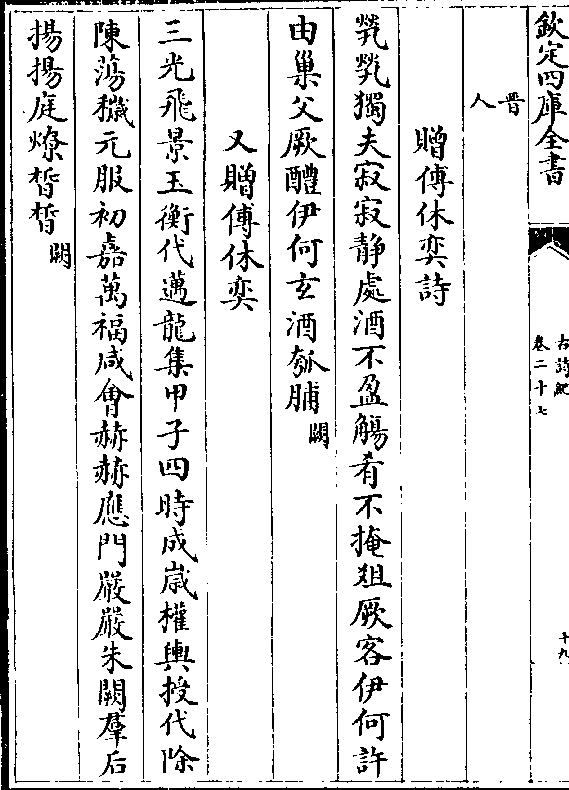 欽定四庫全書
古詩紀
卷二十七
十九
晉
人
贈傅休奕詩
煢煢獨夫寂寂静處酒不盈觴肴不掩俎厥客伊何許
由巢父厥醴伊何玄酒瓠脯闕
又贈傅休奕
三光飛景玉衡代邁龍集甲子四時成嵗權輿授代除
陳蕩穢元服初嘉萬福咸會赫赫應門嚴嚴朱闕羣后
揚揚庭燎晳晳闕